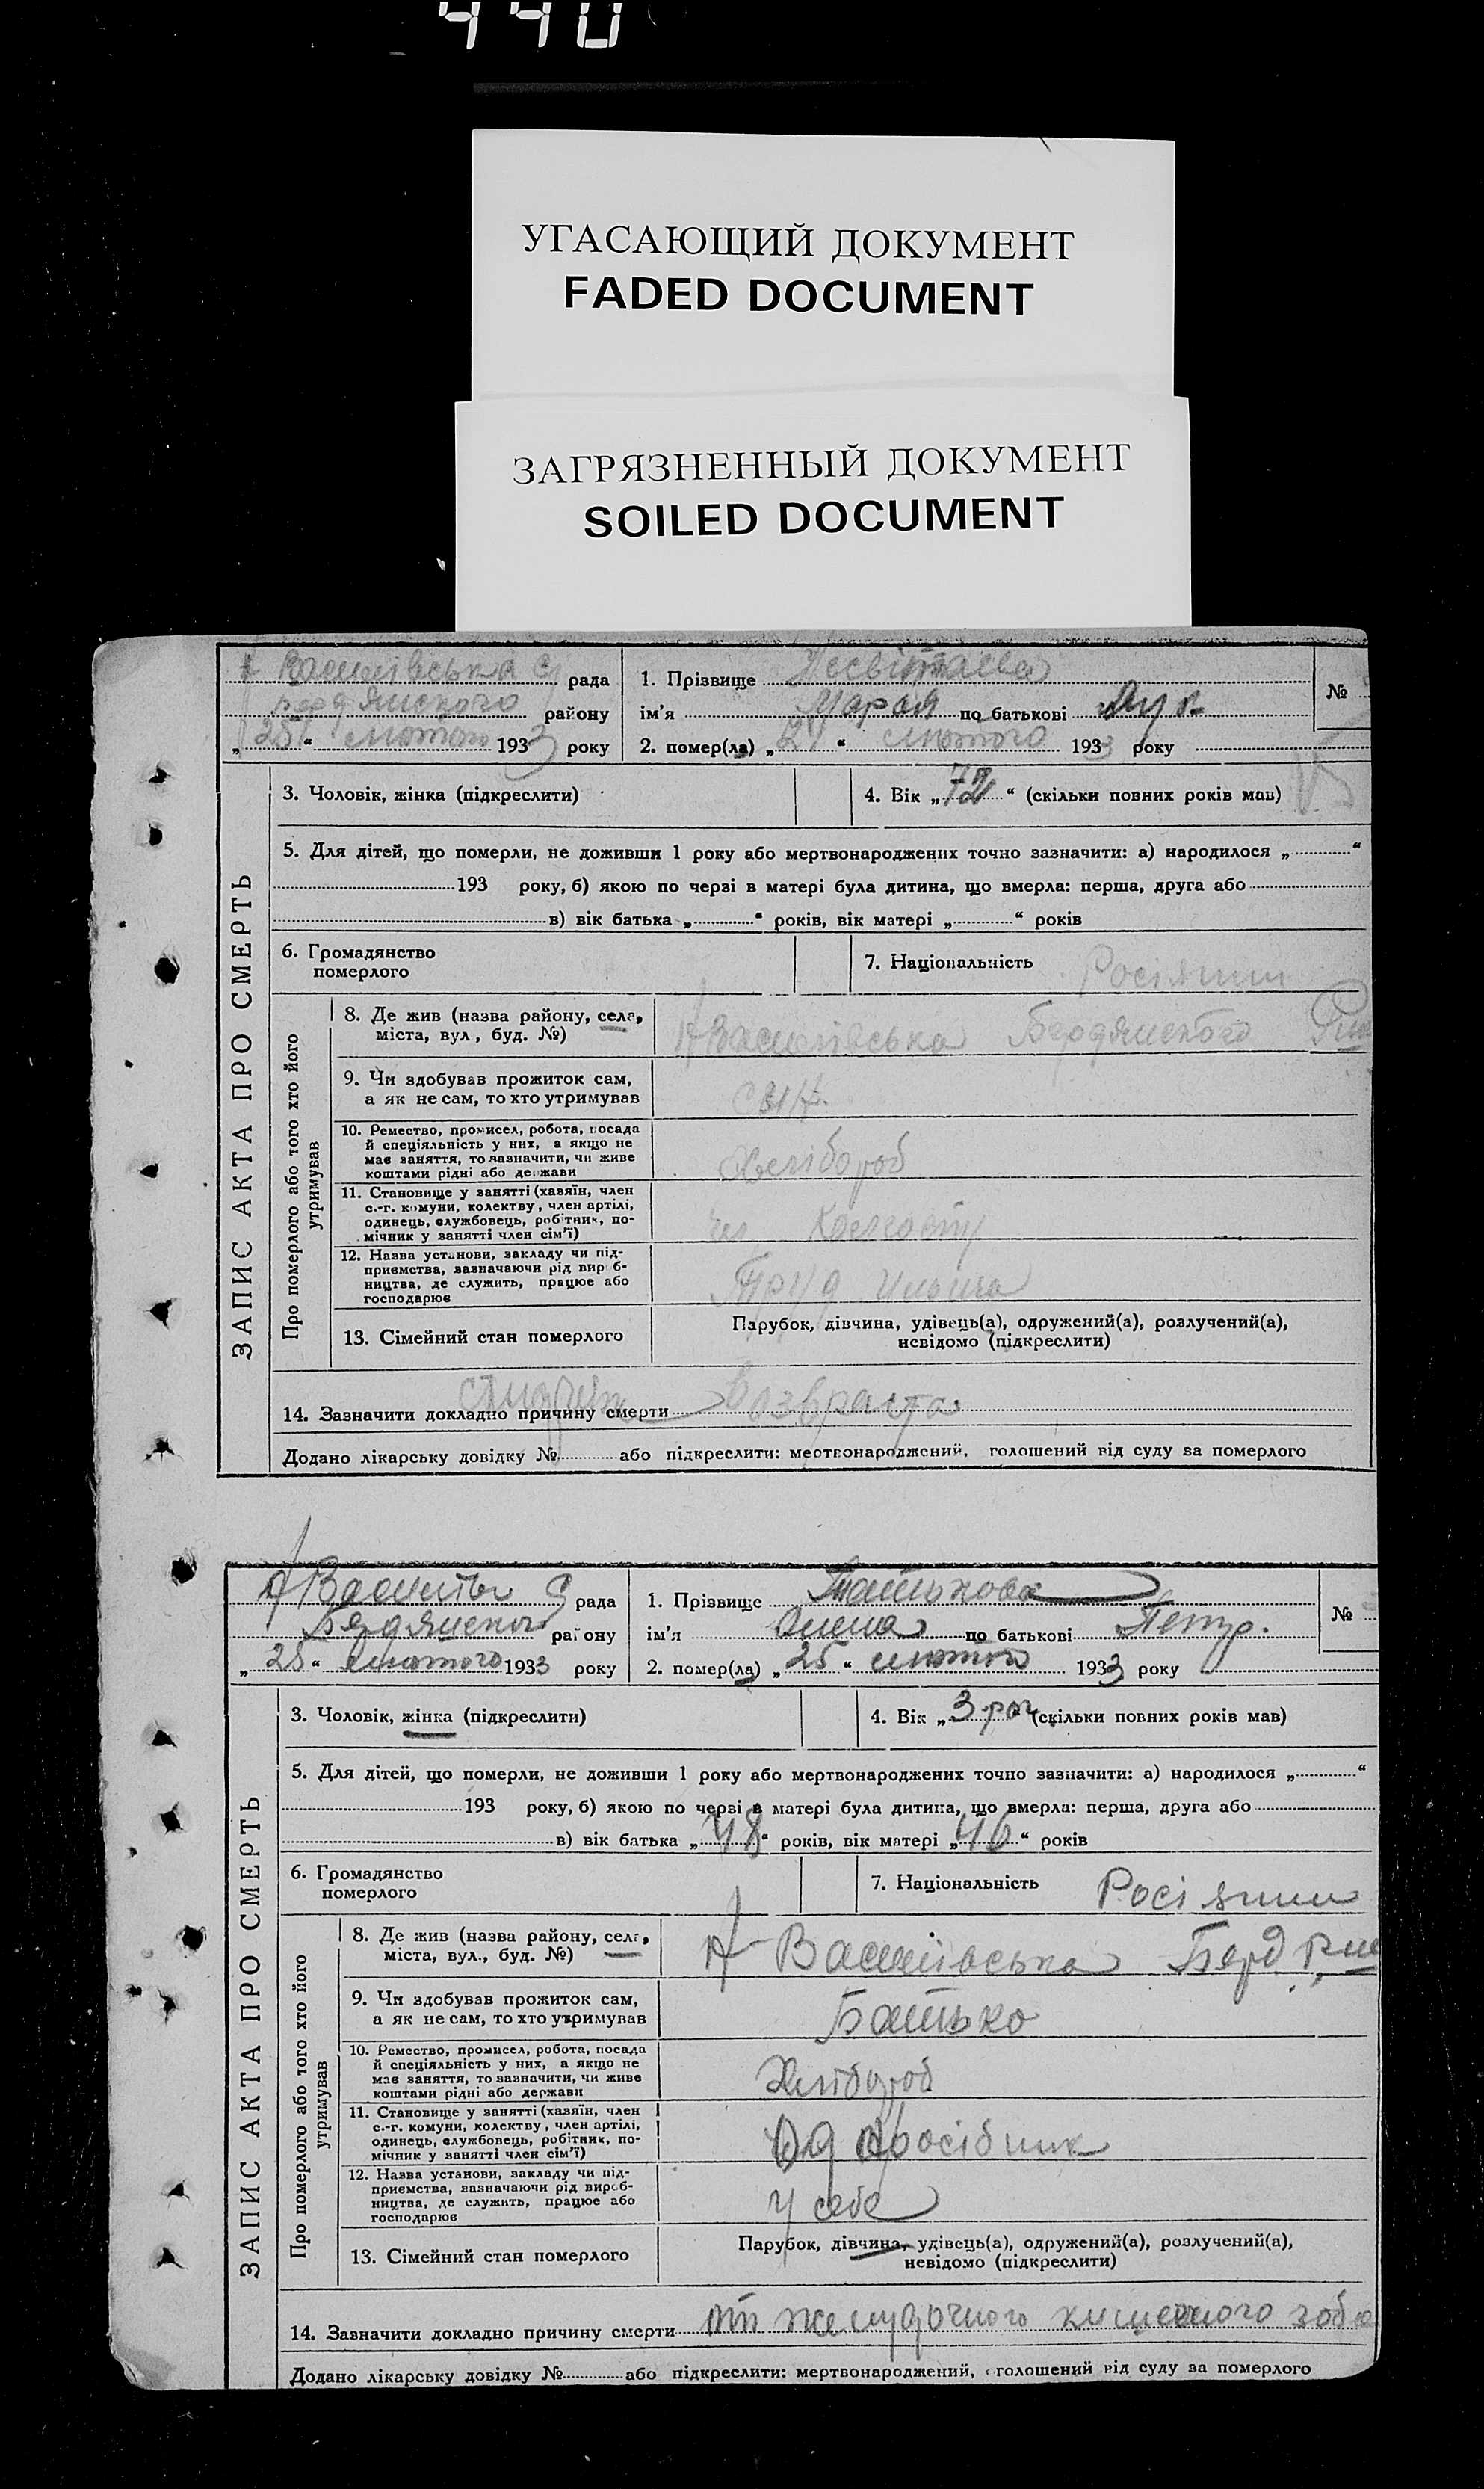 440
УГАСАЮЩИЙ ДОКУМЕНТ
FADED DOCUMENT
ЗАГРЯЗНЕННЫЙ ДОКУМЕНТ
SOILED DOCUMENT
ЗАПИС АКТА ПРО СМЕРТЬ
Василівська С рада
Бердянского району
„25“ лютого 1933 року
1. Прізвище
ім’я Марія по батькові
2. помер(ла) „24“ лютого 1933 року
№
3. Чоловік, жінка (підкреслити)
4. Вік „72“ (скільки повних років мав)
5. Для дітей, що померли, не доживши 1 року або мертвонароджених точно зазначити: а) народилося „ “
193 року, б) якою по черзі в матері була дитина, що вмерла: перша, друга або
в) вік батька „ “ років, вік матері „ “ років
6. Громадянство
померлого
7. Національність Росіянин
Про померлого або того хто його
утримував
8. Де жив (назва району, села,
міста, вул, буд. №)
Василівська Бердянского
9. Чи здобував прожиток сам,
а як не сам, то хто утримував
10. Ремество, промисел, робота, посада
й спеціяльність у них, а якщо не
має заняття, то зазначити, чи живе
коштами рідні або держави
Хлібороб
11. Становище у занятті (хазяїн, член
с.-г. комуни, колектву, член артілі,
одинець, службовець, робітник, по-
мічник у занятті член сім’ї)
чл Колгоспу
12. Назва установи, закладу чи під-
приємства, зазначаючи рід вироб-
ництва, де служить, працює або
господарює
Труд Ильича
13. Сімейний стан померлого
Парубок, дівчина, удівець(а), одружений(а), розлучений(а),
невідомо (підкреслити)
14. Зазначити докладно причину смерти возраста
Додано лікарську довідку № або підкреслити: мертвонароджений, голошений від суду за померлого
ЗАПИС АКТА ПРО СМЕРТЬ
С рада
Бердянского району
„25“ лютого 1933 року
1. Прізвище Татькова
ім’я Олена по батькові Петр.
2. помер(ла) „25“ лютого 1933 року
№
3. Чоловік, жінка (підкреслити)
4. Вік „3 роч (скільки повних років мав)
5. Для дітей, що померли, не доживши 1 року або мертвонароджених точно зазначити: а) народилося „ “
193 року, б) якою по черзі в матері була дитина, що вмерла: перша, друга або
в) вік батька „48“ років, вік матері „46“ років
6. Громадянство
померлого
7. Національність Росіянин
Про померлого або того хто його
утримував
8. Де жив (назва району, села,
міста, вул., буд. №)
Василівська Берд
9. Чи здобував прожиток сам,
а як не сам, то хто утримував
Батько
10. Ремество, промисел, робота, посада
й спеціяльність у них, а якщо не
має заняття, то зазначити, чи живе
коштами рідні або держави
Хлібороб
11. Становище у занятті (хазяїн, член
с.-г. комуни, колектву, член артілі,
одинець, службовець, робітник, по-
мічник у занятті член сім’ї)
Одноосібник
12. Назва установи, закладу чи під-
приємства, зазначаючи рід вироб-
ництва, де служить, працює або
господарює
У себе
13. Сімейний стан померлого
Парубок, дівчина, удівець(а), одружений(а), розлучений(а),
невідомо (підкреслити)
14. Зазначити докладно причину смерти от желудочного кишечного забо
Додано лікарську довідку № або підкреслити: мертвонароджений, голошений від суду за померлого